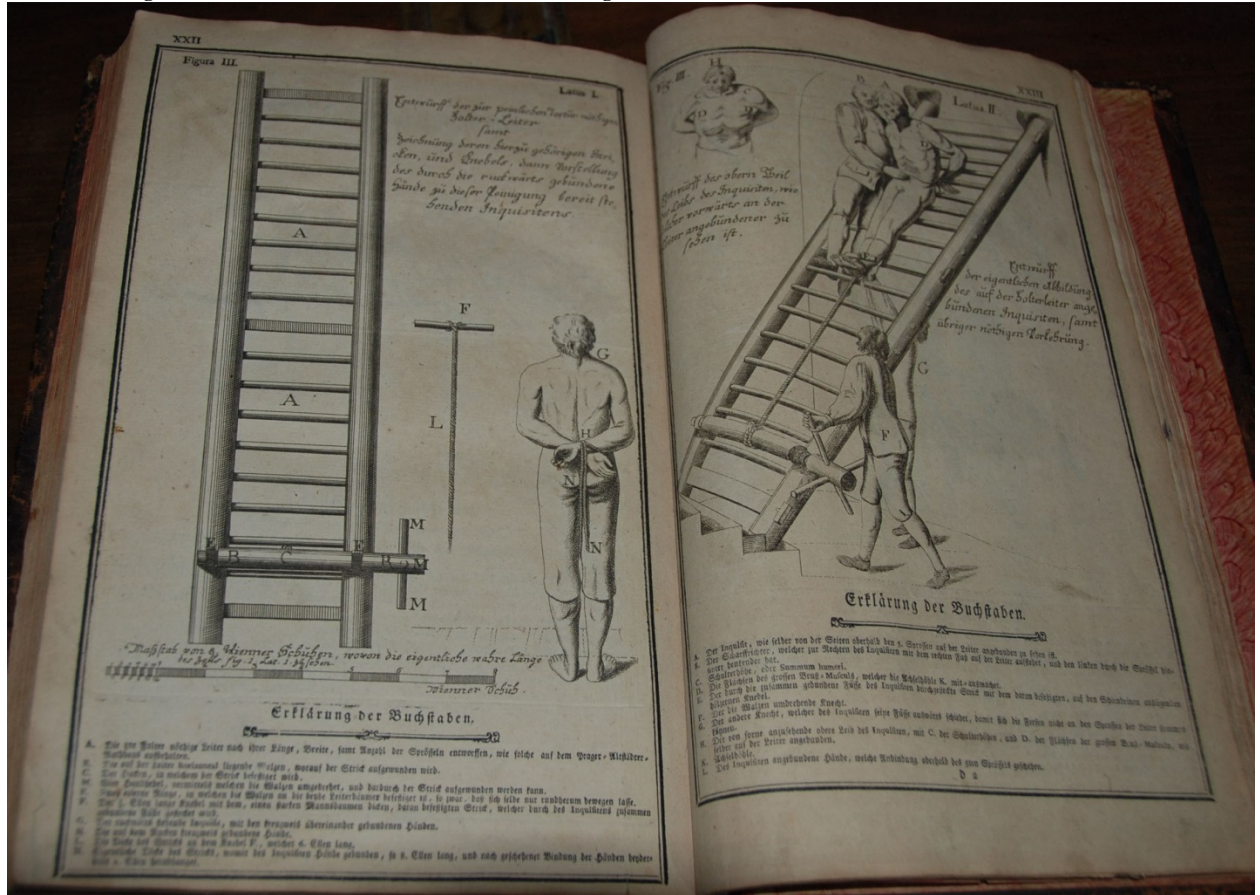 XXII
Figura III.
Latus I.
Entwurff der zur peinlichen Tortur nöthigen
Folter-Leiter
samt
Zeichnung deren hierzu gehörigen
und Knebels, dann Vorstellung
des durch die ruckwärts gebundene
Hände zu dieser Peinigung bereit ste-
henden Inquisitens.
A
A
F
L
G
H
N
N
E
B
C
E
B
M
M
M
Maßstab von Wienner Schühen, wovon die eigentliche wahre Länge
des Fig. 1. Lat. 1. zu sehen.
Wienner Schüh.
Erklärung der Buchstaben.
A. Die zur Folter nöthige Leiter nach ihrer Länge, Breite, samt Anzahl der Sprösseln entworffen, wie solche auf dem Prager-Altstädter-
Rathhaus
B. Die auf der Leiter horizontal liegende Walzen, worauf der Strick aufgewunden wird.
C. Der Hacken, an welchem der Strick befestiget wird.
vermittels welchen die Walzen umgekehret, und hierdurch der Strick aufgewunden werden kann.
an welchen die Walzen an die beyde Leiterbäumer befestiget ist, so zwar, daß sich selbe nur rundherum bewegen lasse.
F. Der Ellen lange Knebel mit dem, eines starken Mannsdaumen dicken, daran befestigten Strick, welcher durch des Inquisitens zusammen
gebundene Füße gestecket wird.
G. Der ruckwärts stehende Inquisit, mit den kreuzweis übereinander gebundenen Händen.
H. Die auf dem Rucken kreuzweis gebundene Hände.
L. Die Dicke des Stricks an dem Knebel F, welcher 6. Ellen lang.
N. Eigentliche Dicke des Stricks, womit des Inquisiten Hände gebunden, so 2. Ellen lang, und nach geschehener Bindung der Händen
Ellen
XXIII
Fig. III.
Latus II
H
C
D
B
A
D
Entwurff des obern Theil
des Leibs des Inquisiten, wie
solcher vorwärts an der
Leiter angebundener zu
sehen ist.
Entwurff
der eigentlichen Abbildung
des auf der Folterleiter ange-
bündenen Inquisiten, samt
übriger nöthigen Vorkehrung.
G
F
Erklärung der Buchstaben.
A. Der Inquisit, wie selber von der Seiten oberhalb den Sprossen auf der Leiter angebunden zu sehen ist.
B. Der Scharfrichter, welcher zur Rechten des Inquisiten mit dem rechten Fuß auf der Leiter aufstehet, und den linken durch die Sprössel hin-
unter hat.
C. Schulterhöhe, oder Summum humeri.
D. Die Flächsen des grossen Brust-Musculs, welcher die Achselhöhle K. mit ausmachet.
E. Der durch die zusammen gebundene Füsse des Inquisiten durchgezogene Strick mit dem daran befestigten, auf den Schienbeinen anliegenden
hölzernen Knebel.
F. Der die Walzen umdrehende Knecht.
G. Der andere Knecht, welcher des Inquisitens seine Füsse auswärts schiebet, damit sich die Fersen nicht an den Sprossen der Leiter stemmen
können.
H. Der von forne anzusehende obere Leib des Inquisiten, mit C. der Schulterhöhen, und D. der Flächsen der grossen Brust-Musculn, wie
selber auf der Leiter angebunden.
K. Achselhöhle.
L. Des Inquisitens angebundene Hände, welche Anbindung oberhalb des Sprössels geschehen.